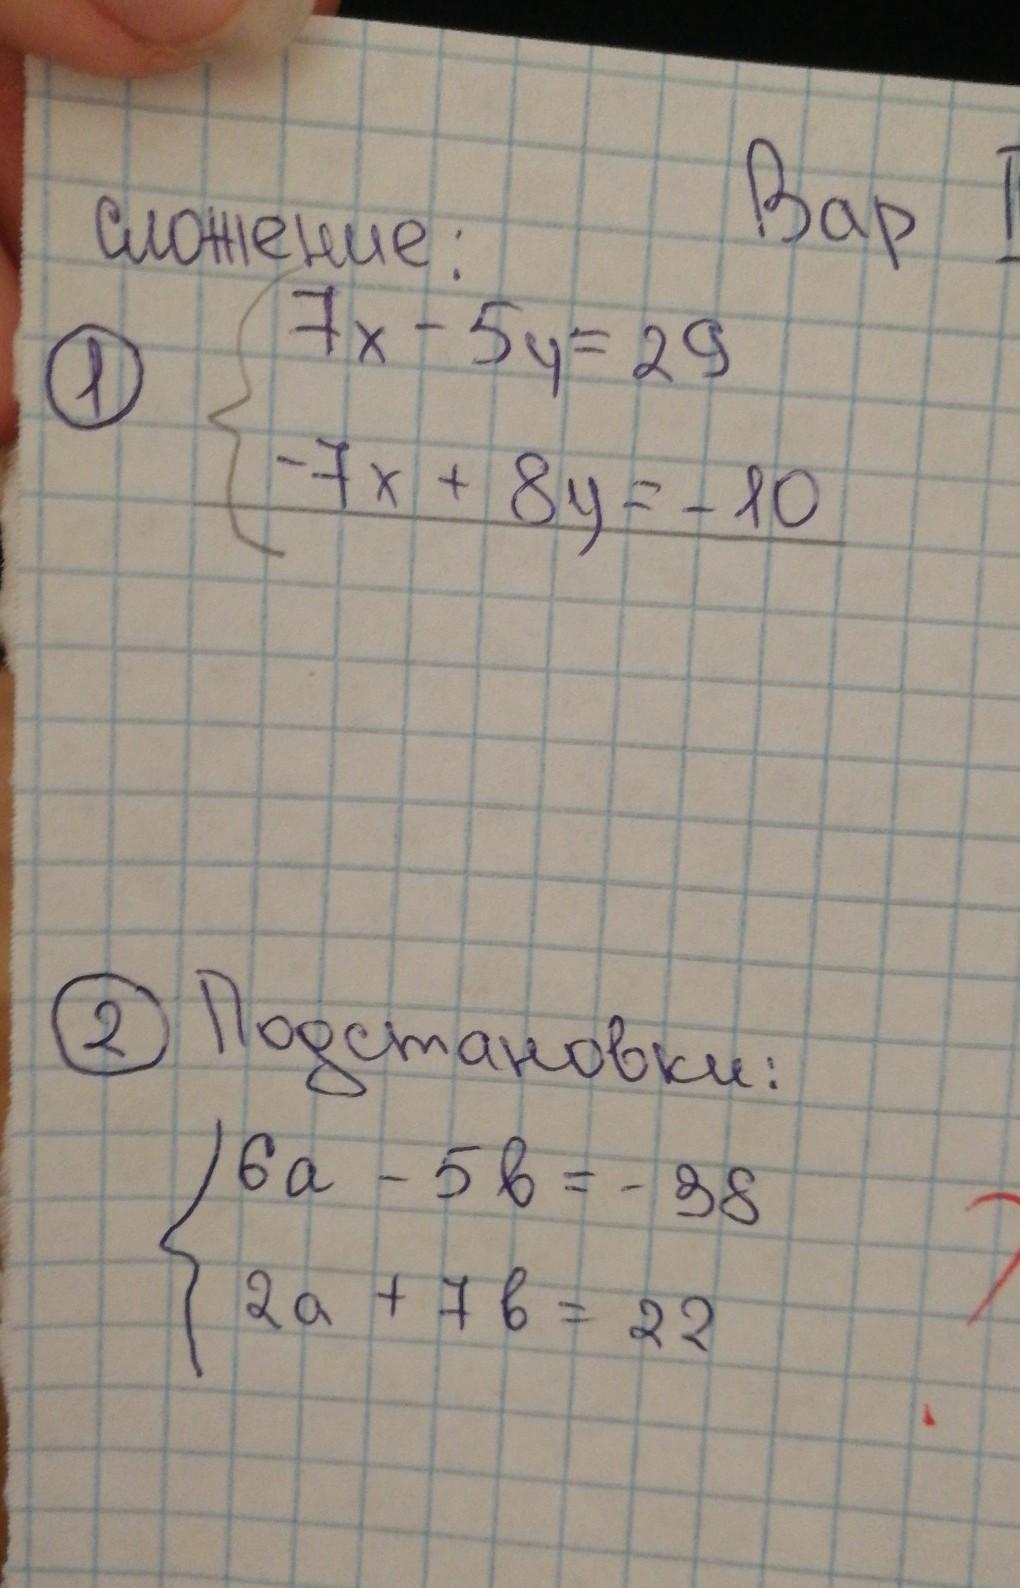 Вар I
сложение:
1
7x - 5y = 29
-7x + 8y = -10
2 Подстановки:
6a - 5b = -38
2a + 7b = 22